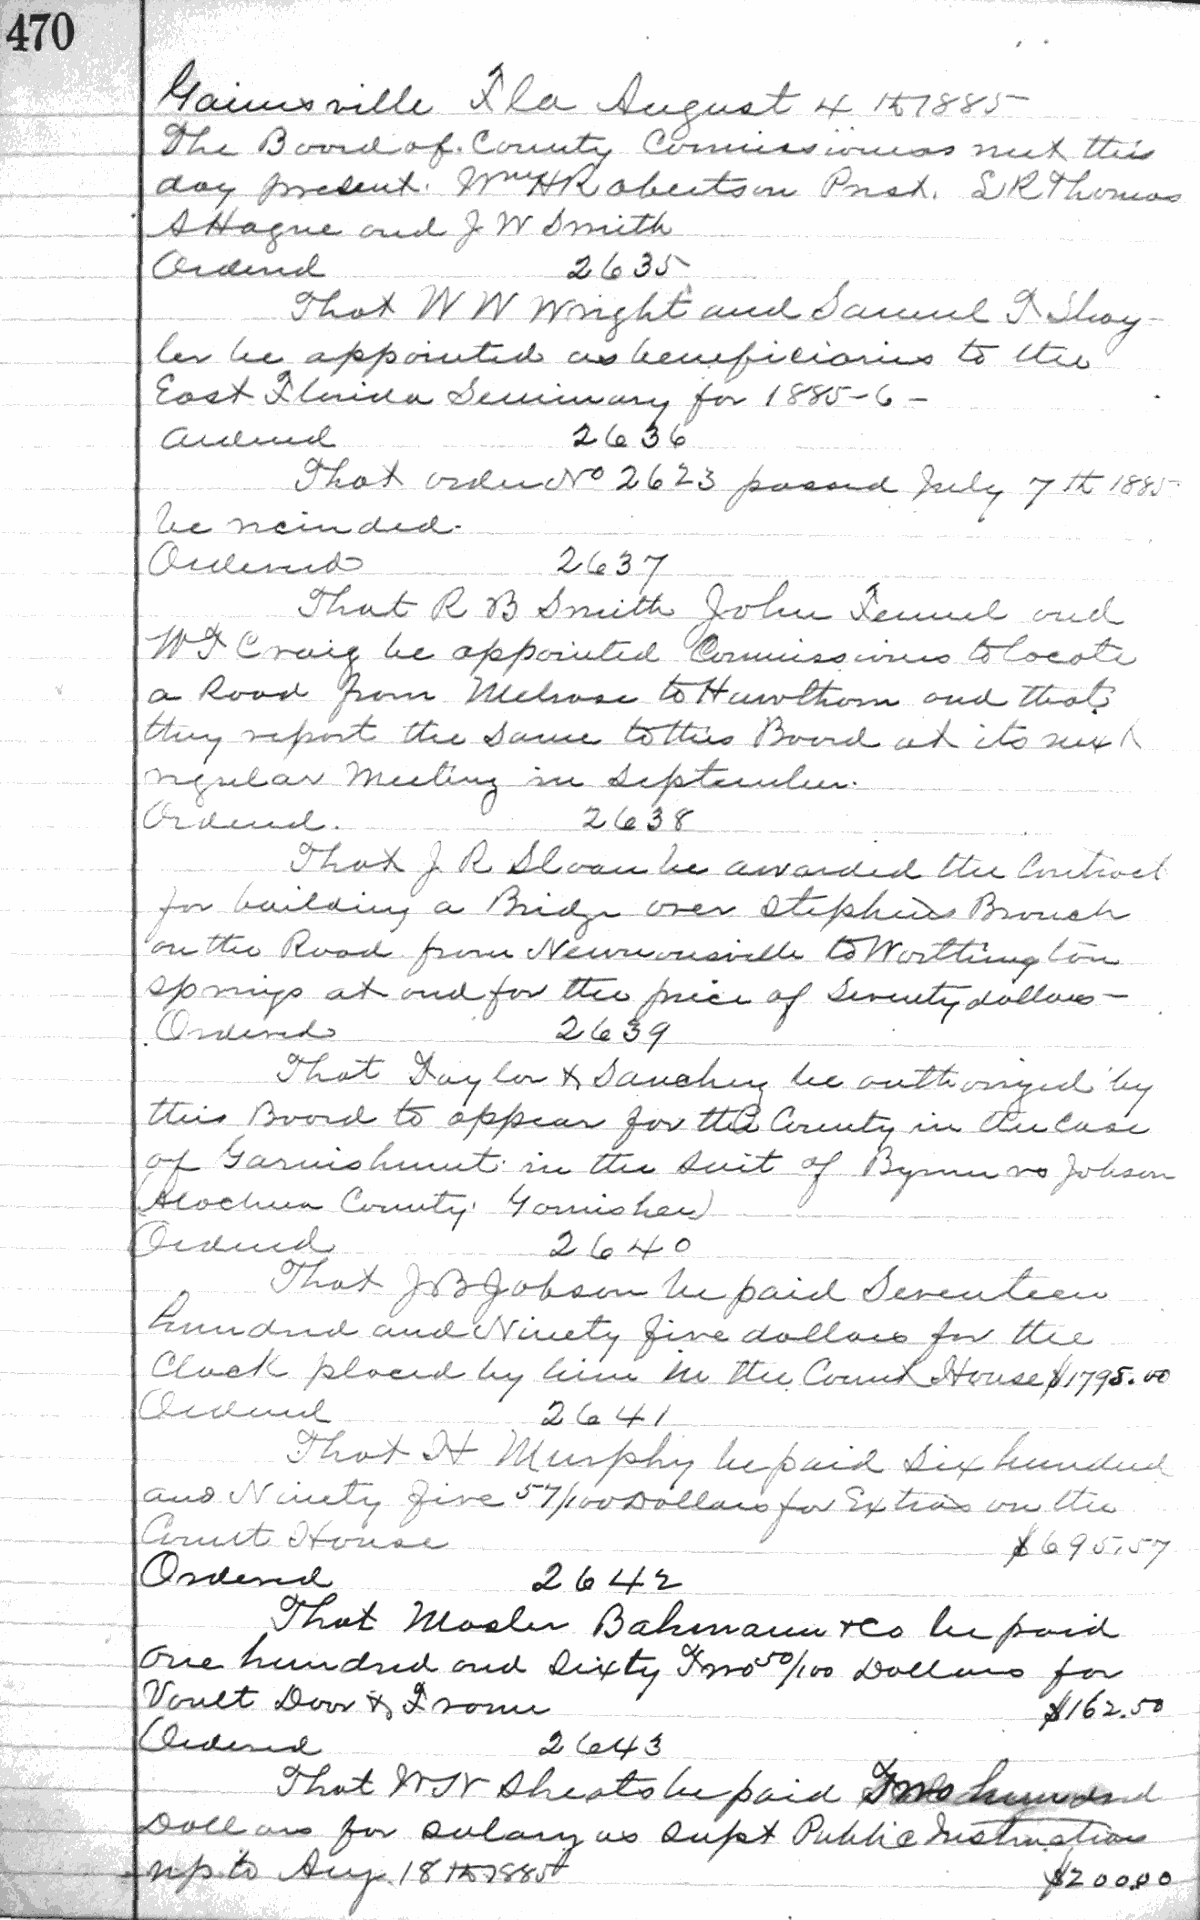 470
Gainesville Fla August 4th 1885
The Board of County Commissioners met this
day present. Wm H Robertson Prest. L R Thomas
S Hague and J W Smith
Ordered 2635
That W W Wright and Samuel T Shay-
ler be appointed as beneficiaries to the
East Florida Seminary for 1885-6-
Ordered 2636
That order No 2623 passed July 7th 1885
be recinded.
Ordered 2637
That R B Smith John Fennel and
W F Craig be appointed Commissioners to locate
a Road from Melrose to Hawthorn and that
they report the same to this Board at its next
regular Meeting in September.
Ordered. 2638
That J R Sloan be awarded the Contract
for building a Bridge over Stephens Branch
on the Road from Newnansville to Worthington
springs at and for the price of Seventy dollars-
Ordered 2639
That Taylor & Sanchez be authorized by
this Board to appear for the County in the Case
of Garnishment in the suit of vs Jobson
(Alachua County Garnishee)
Ordered 2640
That J B Jobson be paid Seventeen
hundred and Ninety five dollars for the
Clock placed by him in the Court House $1795.00
Ordered 2641
That H Murphy be paid Six hundred
and Ninety five 57/100 Dollars for Extras on the
Court House $695.57
Ordered 2642
That Mosler Bahmann & Co be paid
One hundred and Sixty Two 50/100 Dollars for
Vault Door & Frame $162.50
Ordered 2643
That W N Sheats be paid Two hundred
Dollars for salary as Supt Public Instruction
up to Aug 18th 1885 $200.00